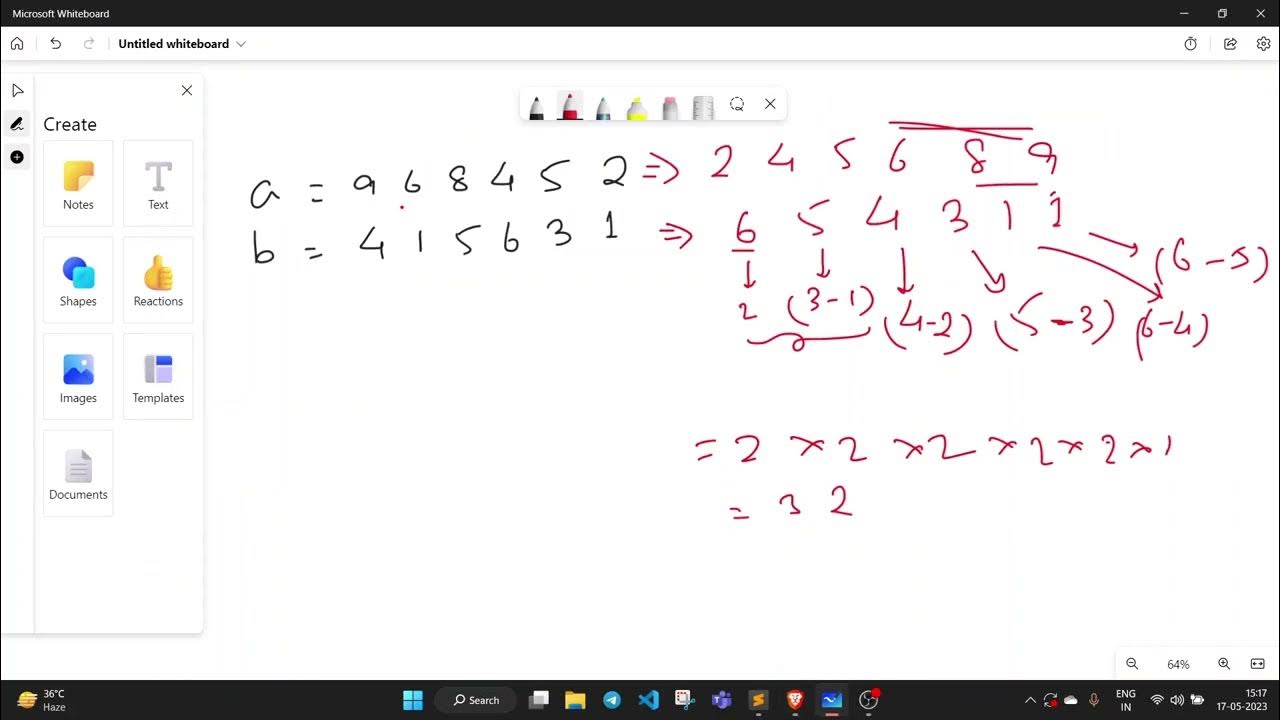 Microsoft Whiteboard
Untitled whiteboard
Create
Notes
Text
Shapes
Reactions
Images
Templates
Documents
a = 9 6 8 4 5 2 => 2 4 5 6 8 9
b = 4 1 5 6 3 1 => 6 5 4 3 1 1
(6-5)
2 (3-1) (4-2) (5-3) (6-4)
= 2 × 2 × 2 × 2 × 2 × 1
= 32
64%
36°C
Haze
Search
ENG
IN
15:17
17-05-2023